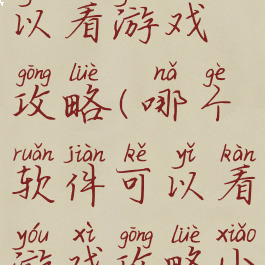 以看游戏
gōng lüè nǎ gè
攻略(哪个
ruǎn jiàn kě yǐ kàn
软件可以看
yóu xì gōng lüè xiǎo
游戏攻略小